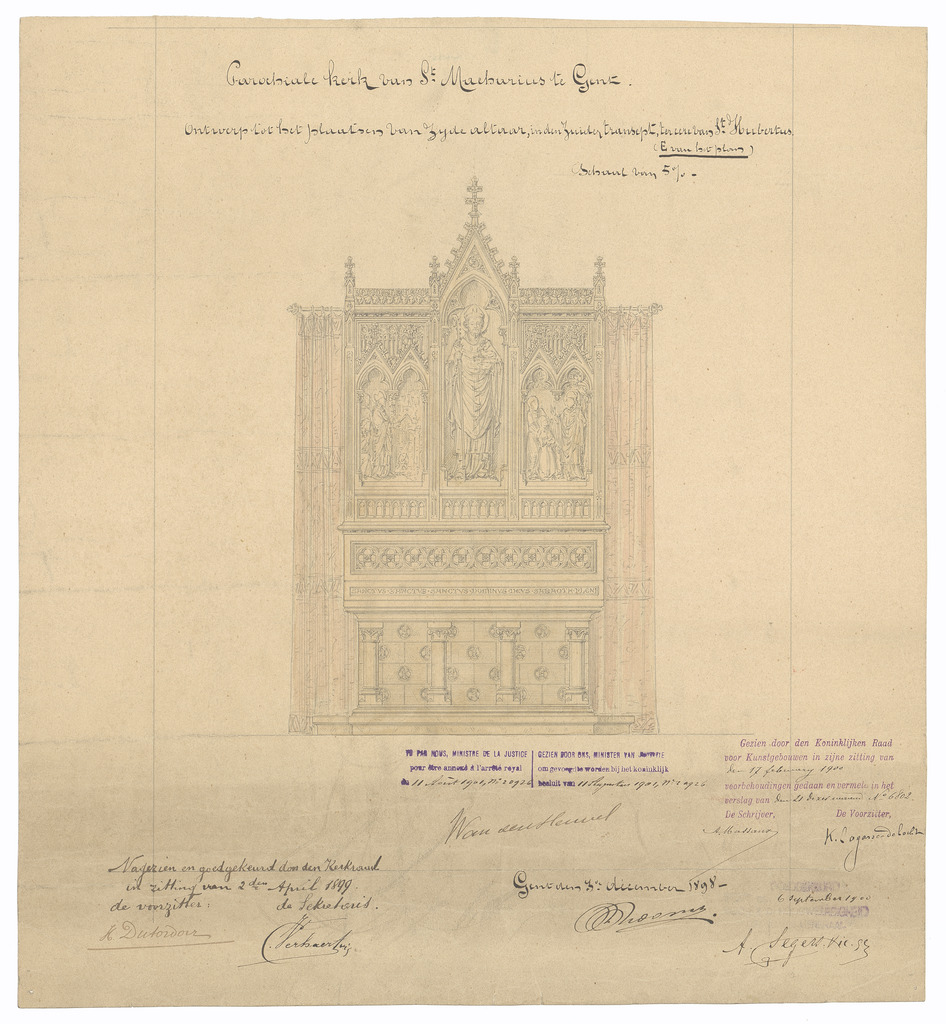 Parochiale kerk van St Macharius te Gent.
Ontwerp tot het plaatsen van zyde altaar, in den Zuider transept, ter eere van St Hubertus.
(E van het plan)
Schaal van 5%-
SANCTVS·SANCTVS·SANCTVS·DOMINVS·DEVS·SABAOTH·PLENI
VU PAR NOUS, MINISTRE DE LA JUSTICE
pour être annexé à l'arrêté royal
du 11 Août 1901, Nº 20926
GEZIEN DOOR ONS, MINISTER VAN Justitie
om gevoegd te worden bij het koninklijk
besluit van 11 Augustus 1901, Nº 20926
Van den Heuvel
Gezien door den Koninklijken Raad
voor Kunstgebouwen in zijne zitting van
den 17 february 1900
voorbehoudingen gedaan en vermeld in het
verslag van den 21 dezer maand Nº 6802
De Schrijver, De Voorzitter,
A. Massaux K. Lagasse de Locht
Nagezien en goedgekeurd don den Kerkraad
in zitting van 2den April 1899.
de voorzitter: de Sekretaris.
Gent den 3n december 1898-
6 September 1900
A. Segers